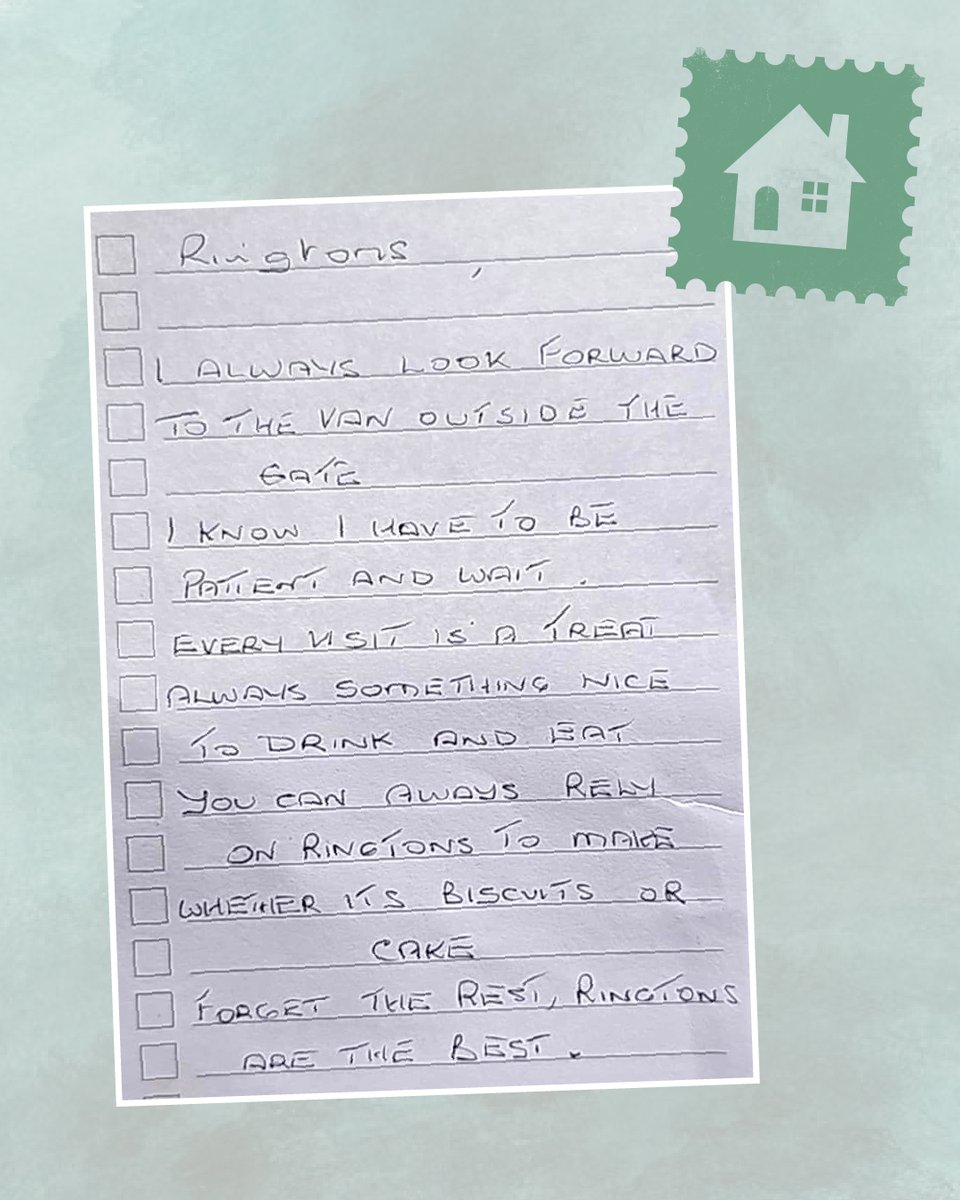 Ringtons
I ALWAYS LOOK FORWARD
TO THE VAN OUTSIDE THE
GATE
I KNOW I HAVE TO BE
PATIENT AND WAIT.
EVERY VISIT IS A TREAT
ALWAYS SOMETHING NICE
TO DRINK AND EAT
YOU CAN AWAYS RELY
ON RINGTONS TO MAKE
WHETHER ITS BISCUITS OR
CAKE
FORGET THE REST, RINGTONS
ARE THE BEST.